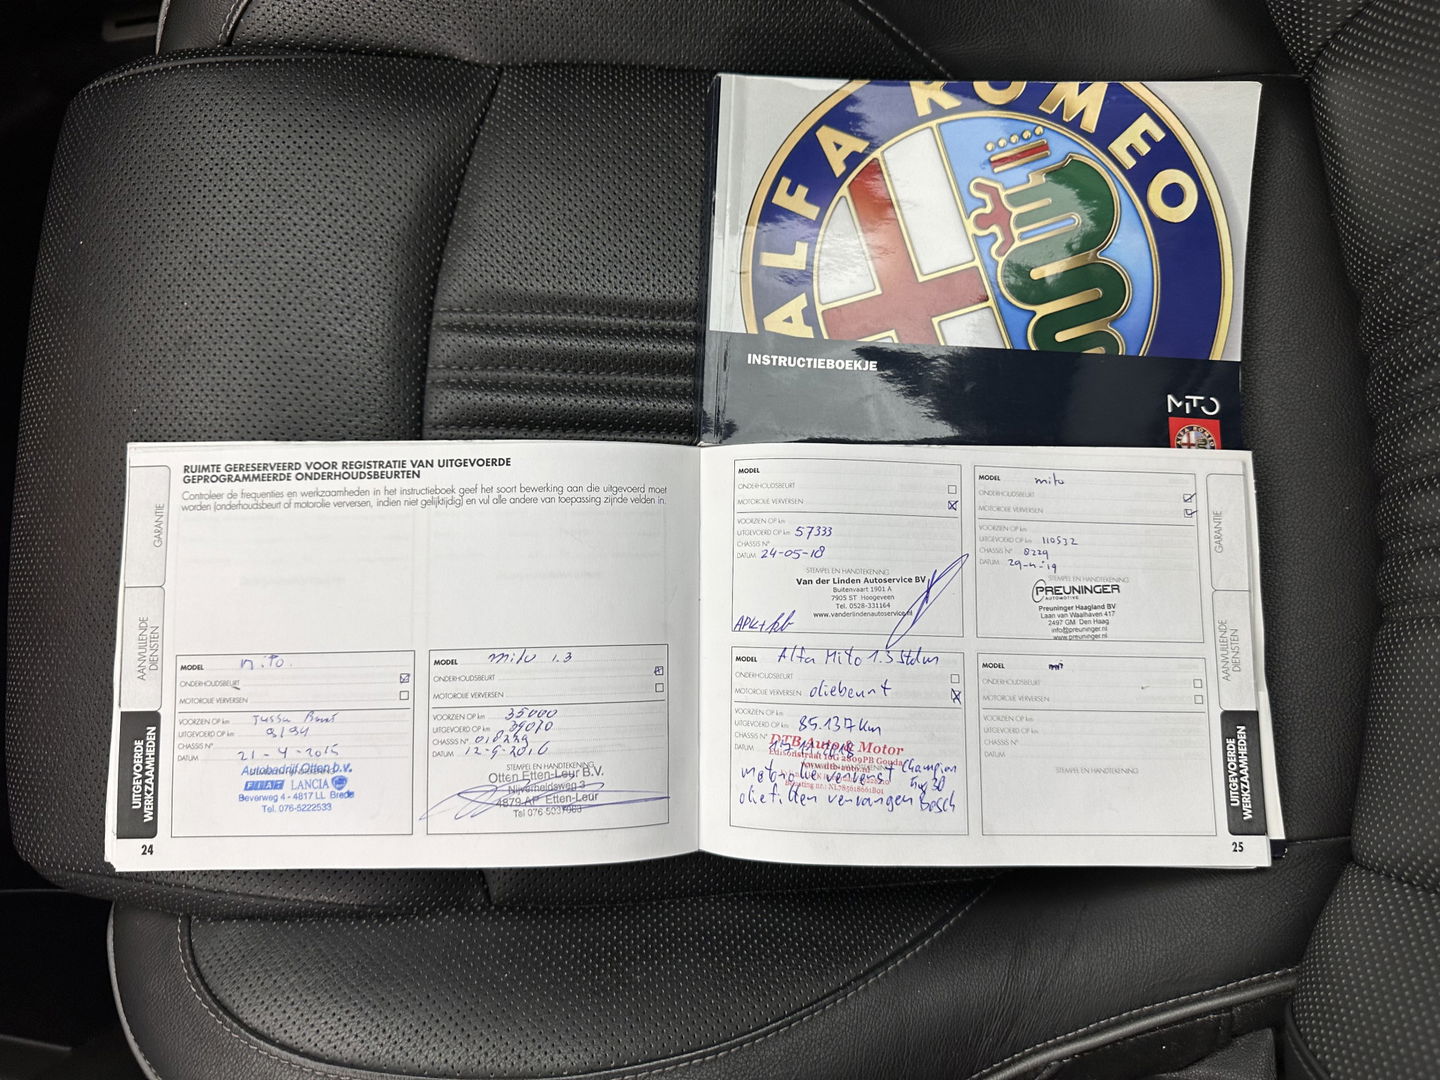 ALFA ROMEO
INSTRUCTIEBOEKJE
MiTO
ALFA ROMEO
GARANTIE
AANVULLENDE
DIENSTEN
UITGEVOERDE
WERKZAAMHEDEN
RUIMTE GERESERVEERD VOOR REGISTRATIE VAN UITGEVOERDE
GEPROGRAMMEERDE ONDERHOUDSBEURTEN
Controleer de frequenties en werkzaamheden in het instructieboek geef het soort bewerking aan die uitgevoerd moet
worden (onderhoudsbeurt of motorolie verversen, indien niet gelijktijdig) en vul alle andere van toepassing zijnde velden in.
MODEL mito.
ONDERHOUDSBEURT
MOTOROLIE VERVERSEN
VOORZIEN OP km
UITGEVOERD OP km
CHASSIS N°
DATUM 21-4-2015
Autobedrijf Otten b.v.
FIAT LANCIA
Beverweg 4 - 4817 LL Breda
Tel. 076-5222533
24
MODEL mito 1.3
ONDERHOUDSBEURT
MOTOROLIE VERVERSEN
VOORZIEN OP km 35000
UITGEVOERD OP km
CHASSIS N° 018229
DATUM 12-9-2016
STEMPEL EN HANDTEKENING
Otten Etten-Leur B.V.
Nijverheidsweg 3
4879 AP Etten-Leur
Tel 076 5037063
MODEL
ONDERHOUDSBEURT
MOTOROLIE VERVERSEN
VOORZIEN OP km
UITGEVOERD OP km 57333
CHASSIS N°
DATUM 24-05-18
STEMPEL EN HANDTEKENING
Van der Linden Autoservice BV
Buitenvaart 1901 A
7905 ST Hoogeveen
Tel. 0528-331164
www.vanderlindenautoservice.nl
APK+
MODEL mito
ONDERHOUDSBEURT
MOTOROLIE VERVERSEN
VOORZIEN OP km
UITGEVOERD OP km 110532
CHASSIS N° 8229
DATUM
STEMPEL EN HANDTEKENING
PREUNINGER
AUTOMOTIVE
Preuninger Haagland BV
Laan van Waalhaven 417
2497 GM Den Haag
info@preuninger.nl
www.preuninger.nl
MODEL Alfa Mito 1.3 Stdm
ONDERHOUDSBEURT
MOTOROLIE VERVERSEN oliebeurt
VOORZIEN OP km
UITGEVOERD OP km 85.137 km
CHASSIS N°
DATUM
DTB Auto & Motor
Edisonstraat 16G 2809PB Gouda
www.dtb-auto.nl
motorolie ververst Champion
5w30
oliefilter vervangen Bosch
MODEL
ONDERHOUDSBEURT
MOTOROLIE VERVERSEN
VOORZIEN OP km
UITGEVOERD OP km
CHASSIS N°
DATUM
STEMPEL EN HANDTEKENING
GARANTIE
AANVULLENDE
DIENSTEN
UITGEVOERDE
WERKZAAMHEDEN
25